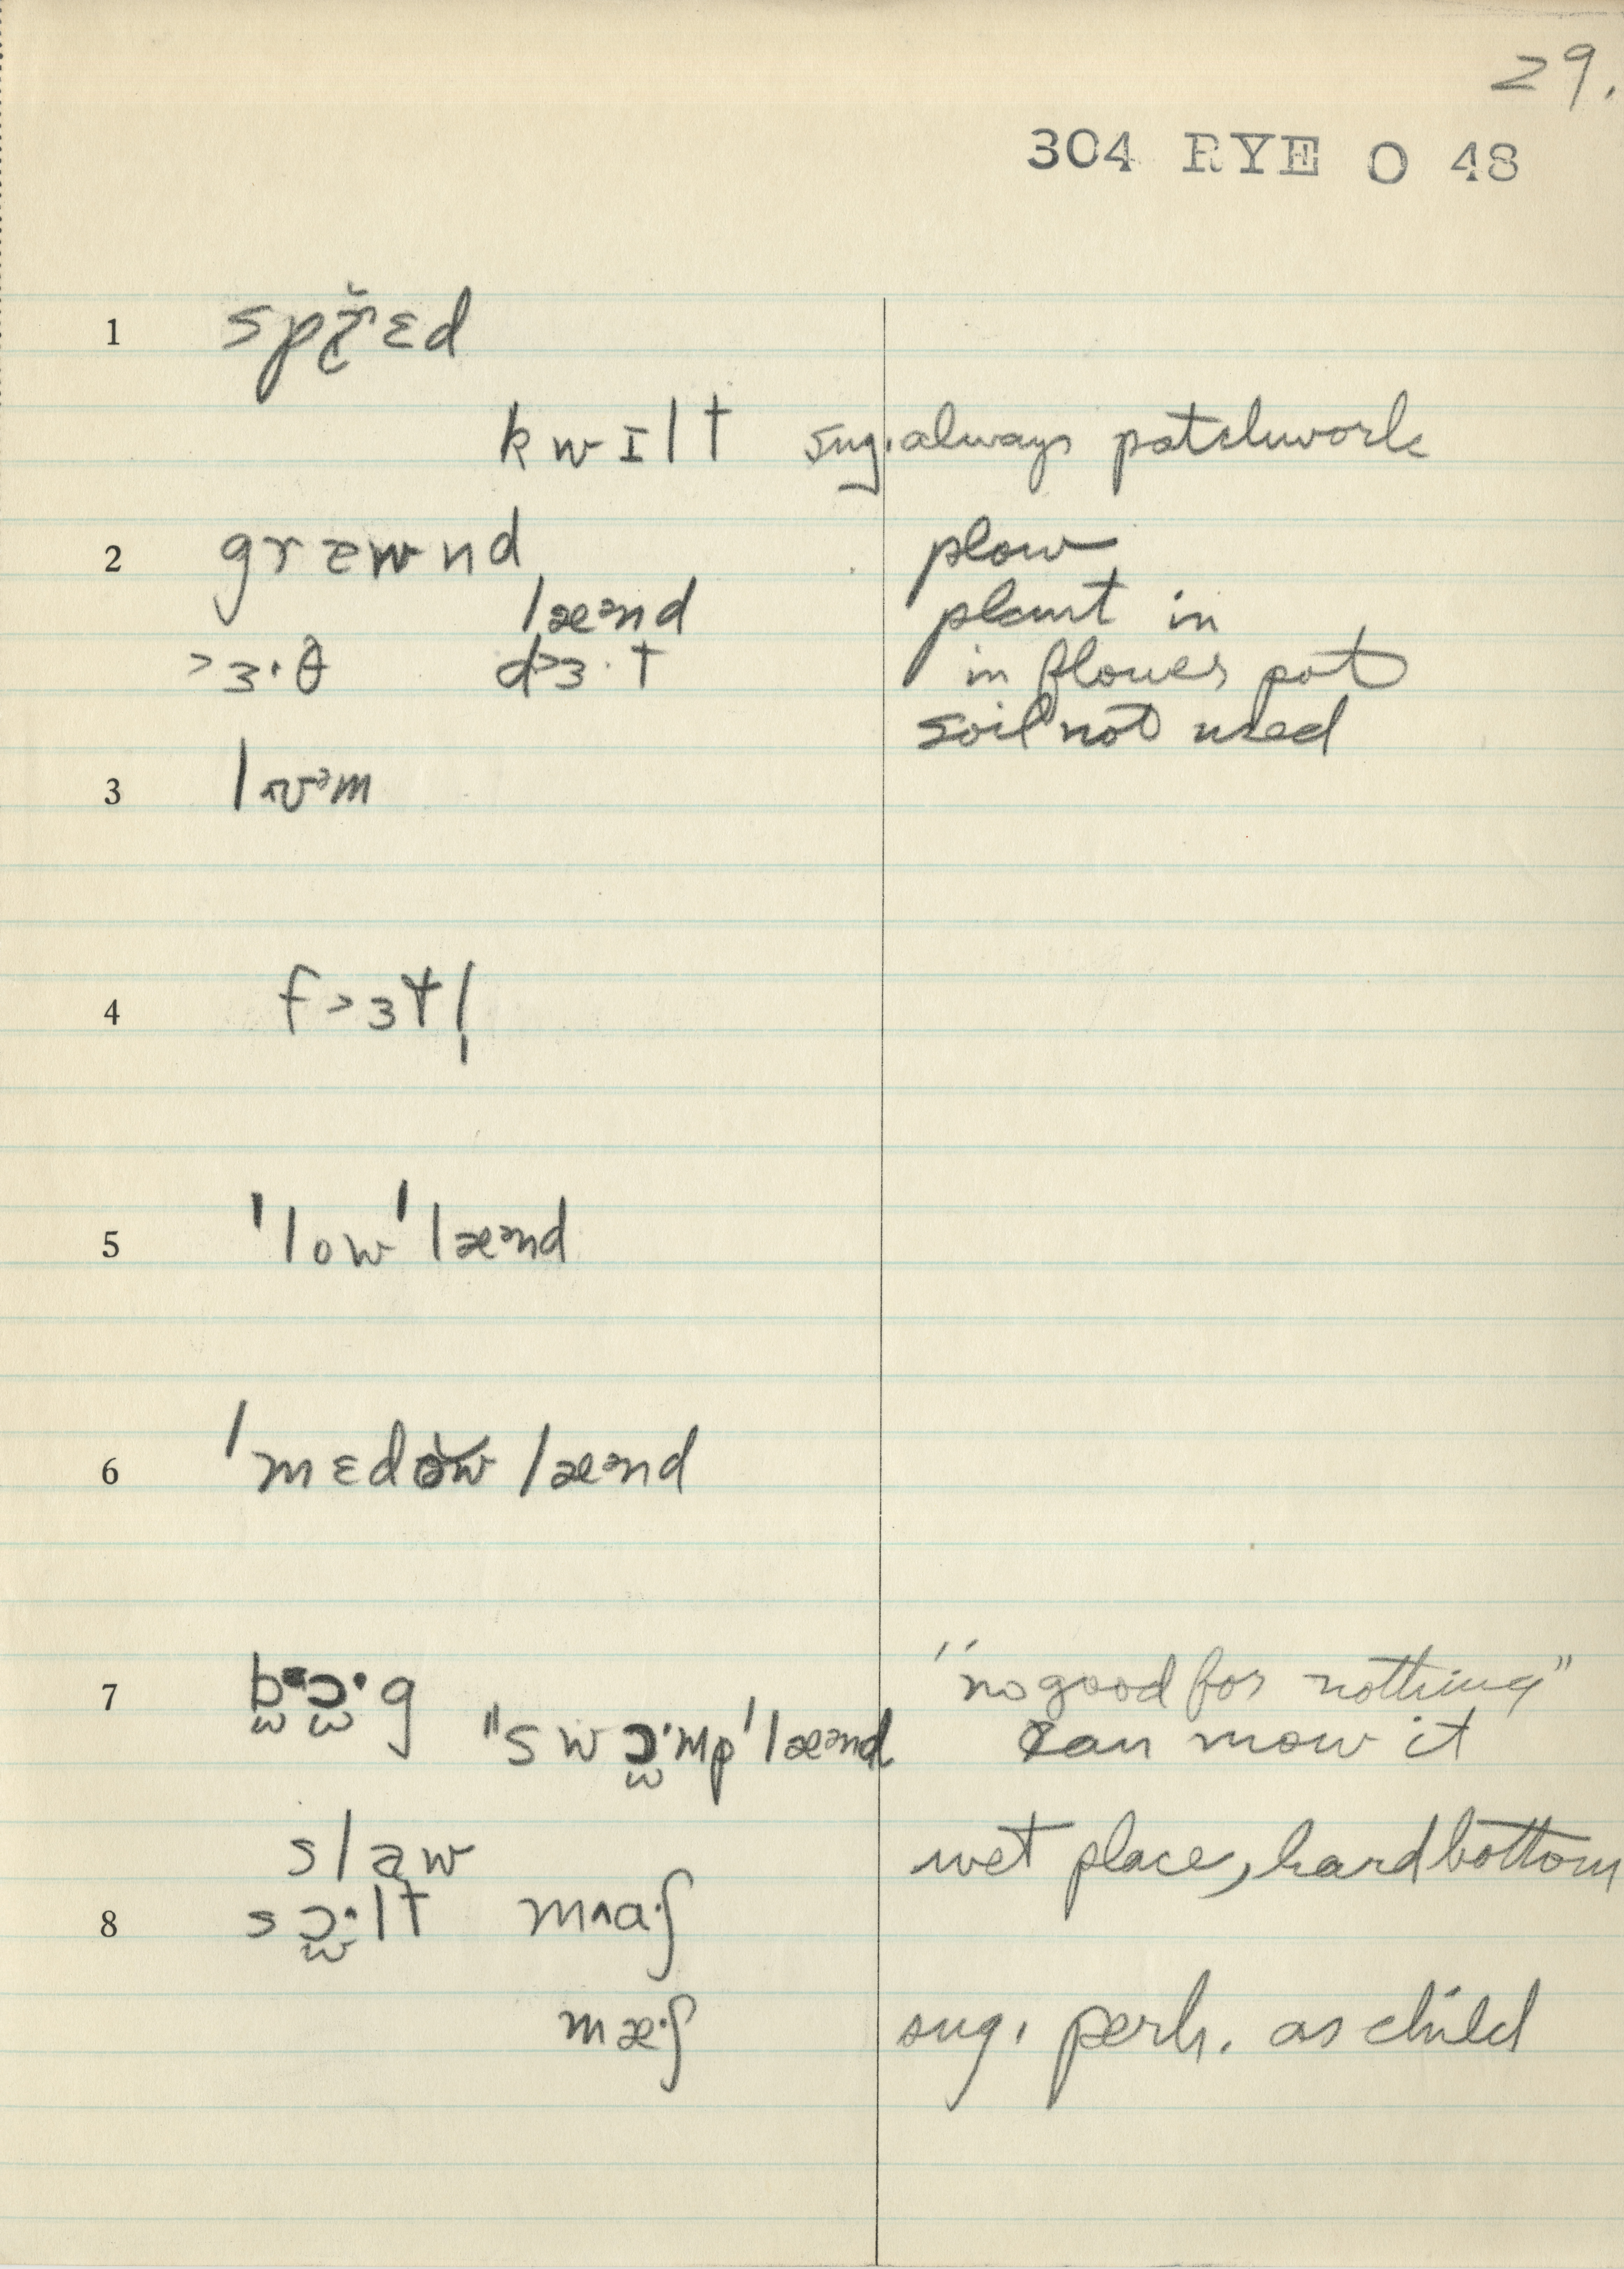 29.
304 RYE O 48
1 spř̥ɛd
kwɪlt sug. always patchwork
2 græwnd plow
læᵊnd plant in
˃ɜ·θ d˃ɜ·t in flower pot
soil not used
3 lɒᵊm
4 f˃ɜtl̩
5 'low'læᵊnd
6 'mɛdŏw læᵊnd
7 b̫ɔ̫·g "no good for nothing"
"swɔ̫·mp'læᵊnd can mow it
slaw wet place, hard bottom
8 sɔ̫·lt m^a·ʃ
mæ·ʃ sug. perh. as child